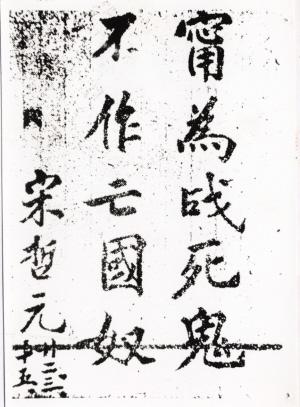 甯為战死鬼
不作亡國奴
宋哲元
廿二.三.
十五.